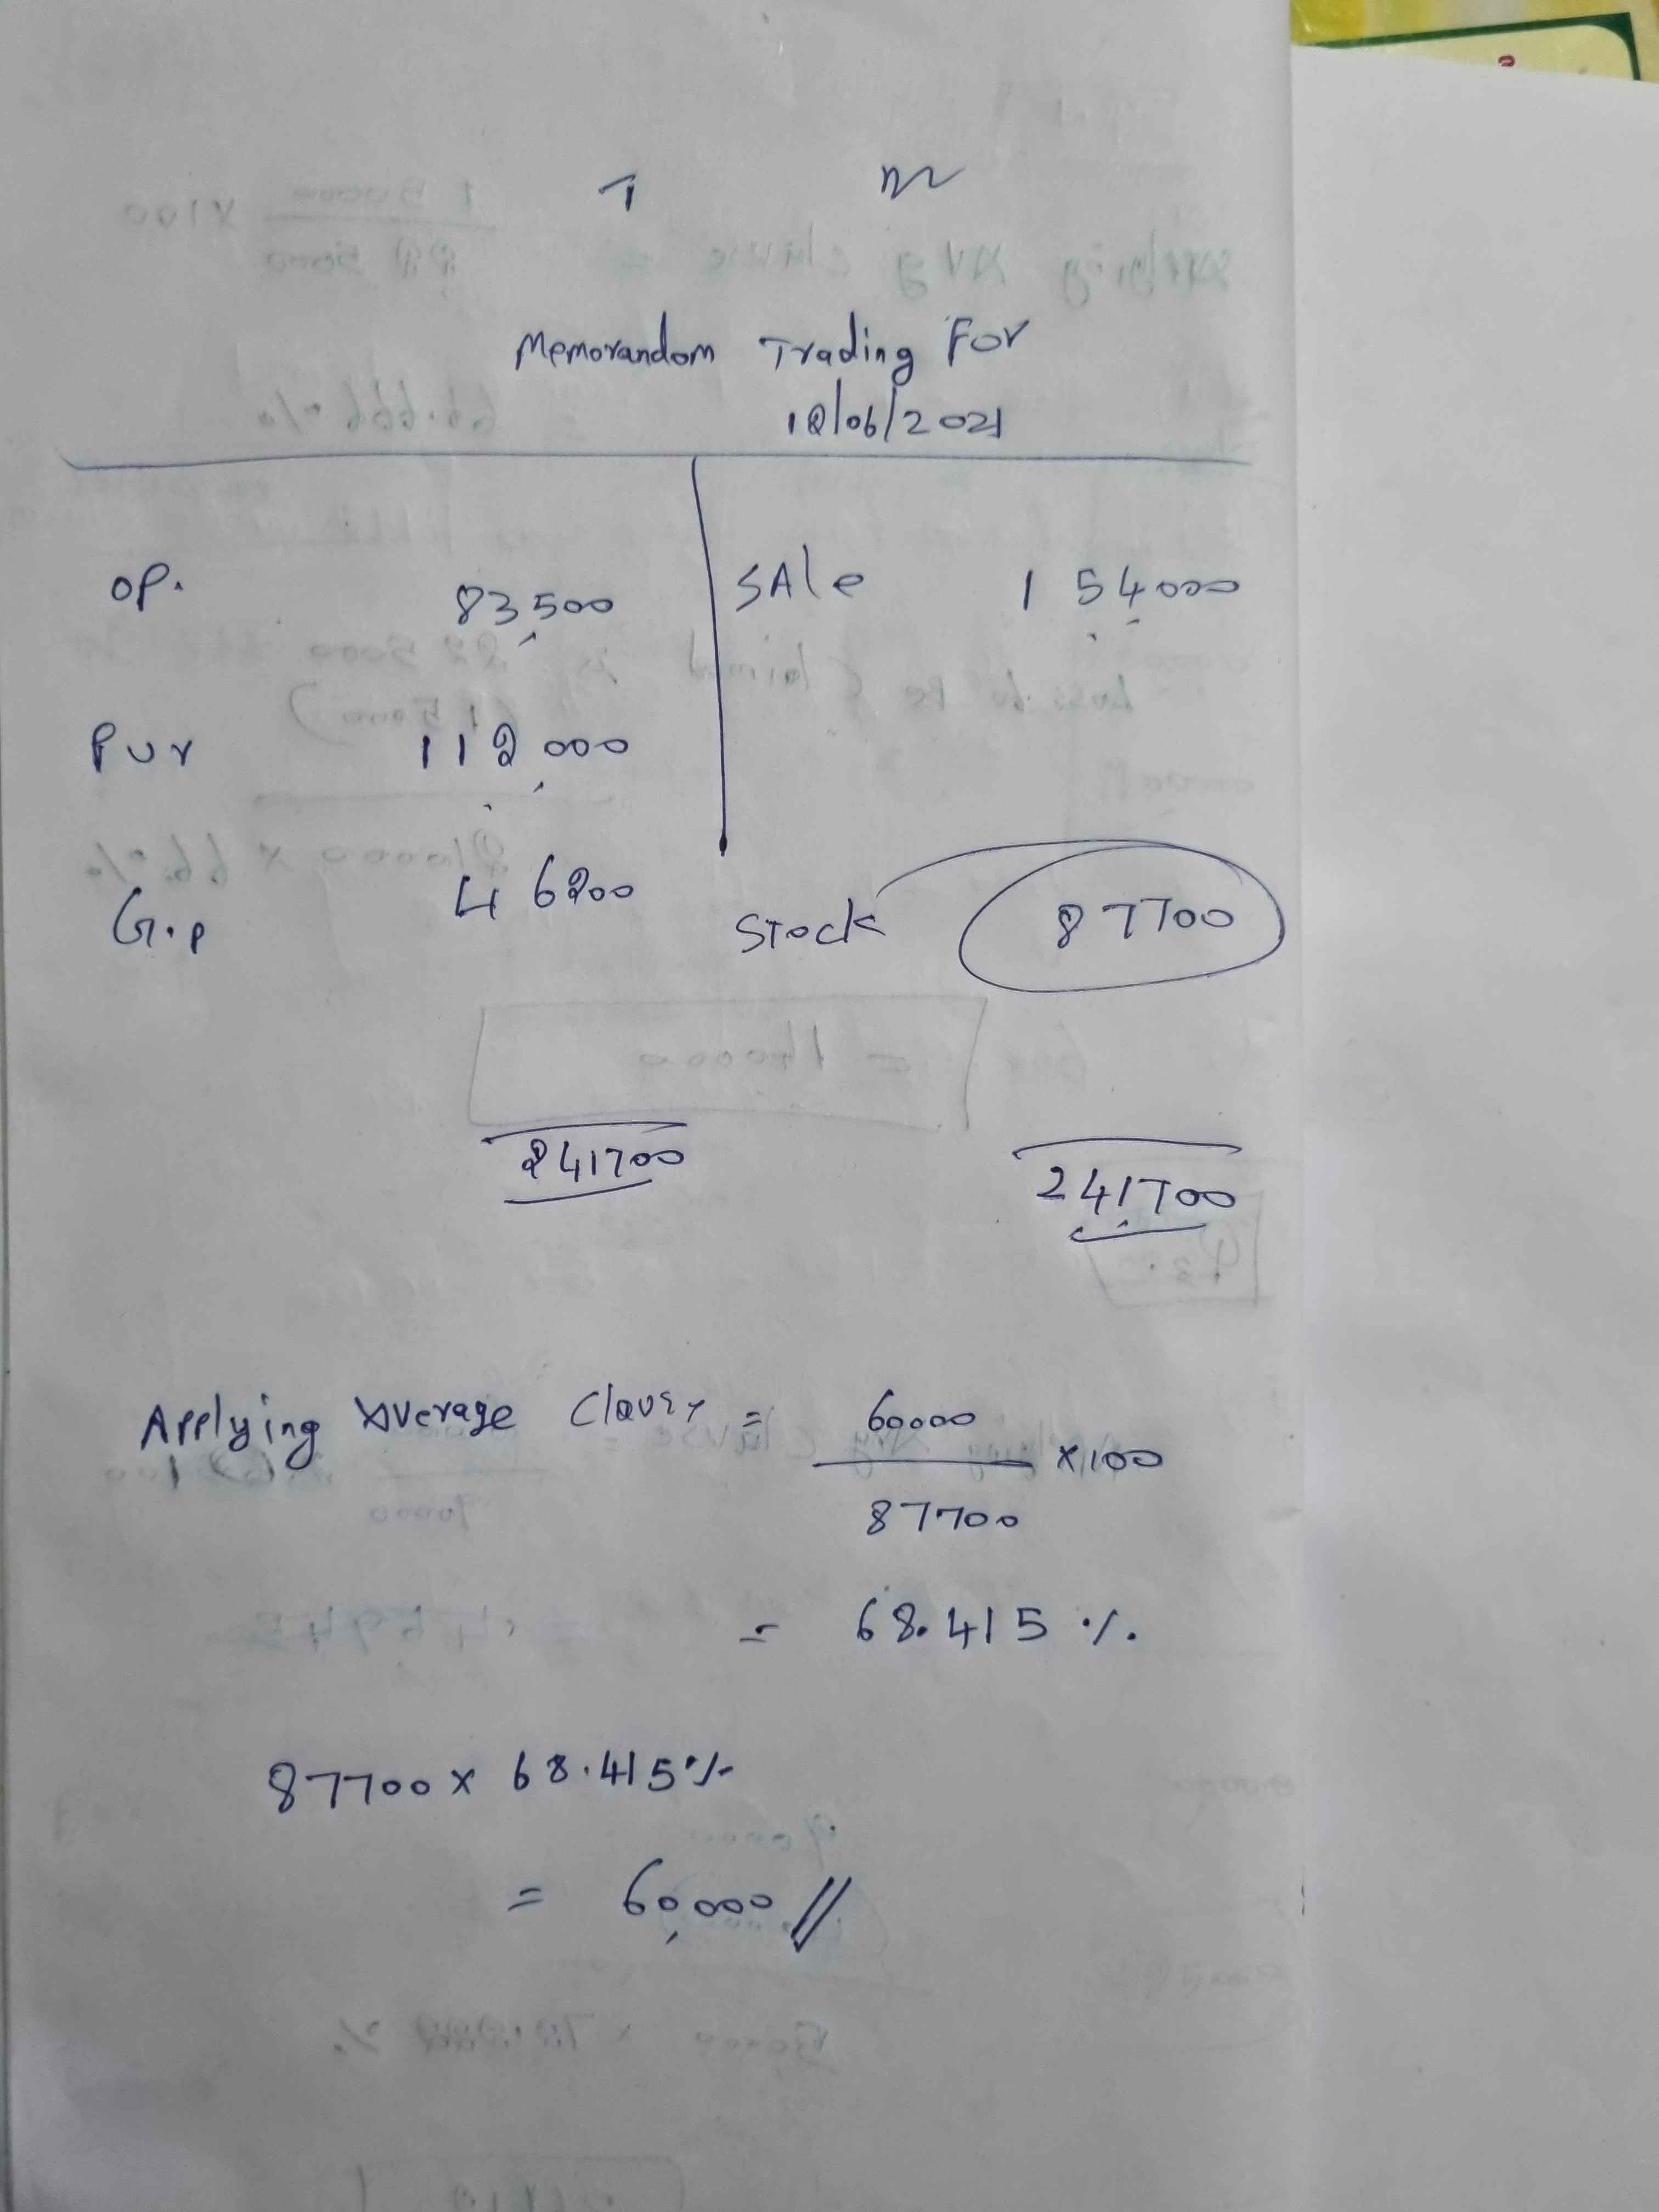 Memorandom Trading For
12/06/2021
OP. 83500 SAle 154000
Pur 112000
G.P 46200 Stock 87700
241700 241700
Applying Average Clause = 60000
× 100
87700
= 68.415 %
87700 × 68.415%
= 60,000 //